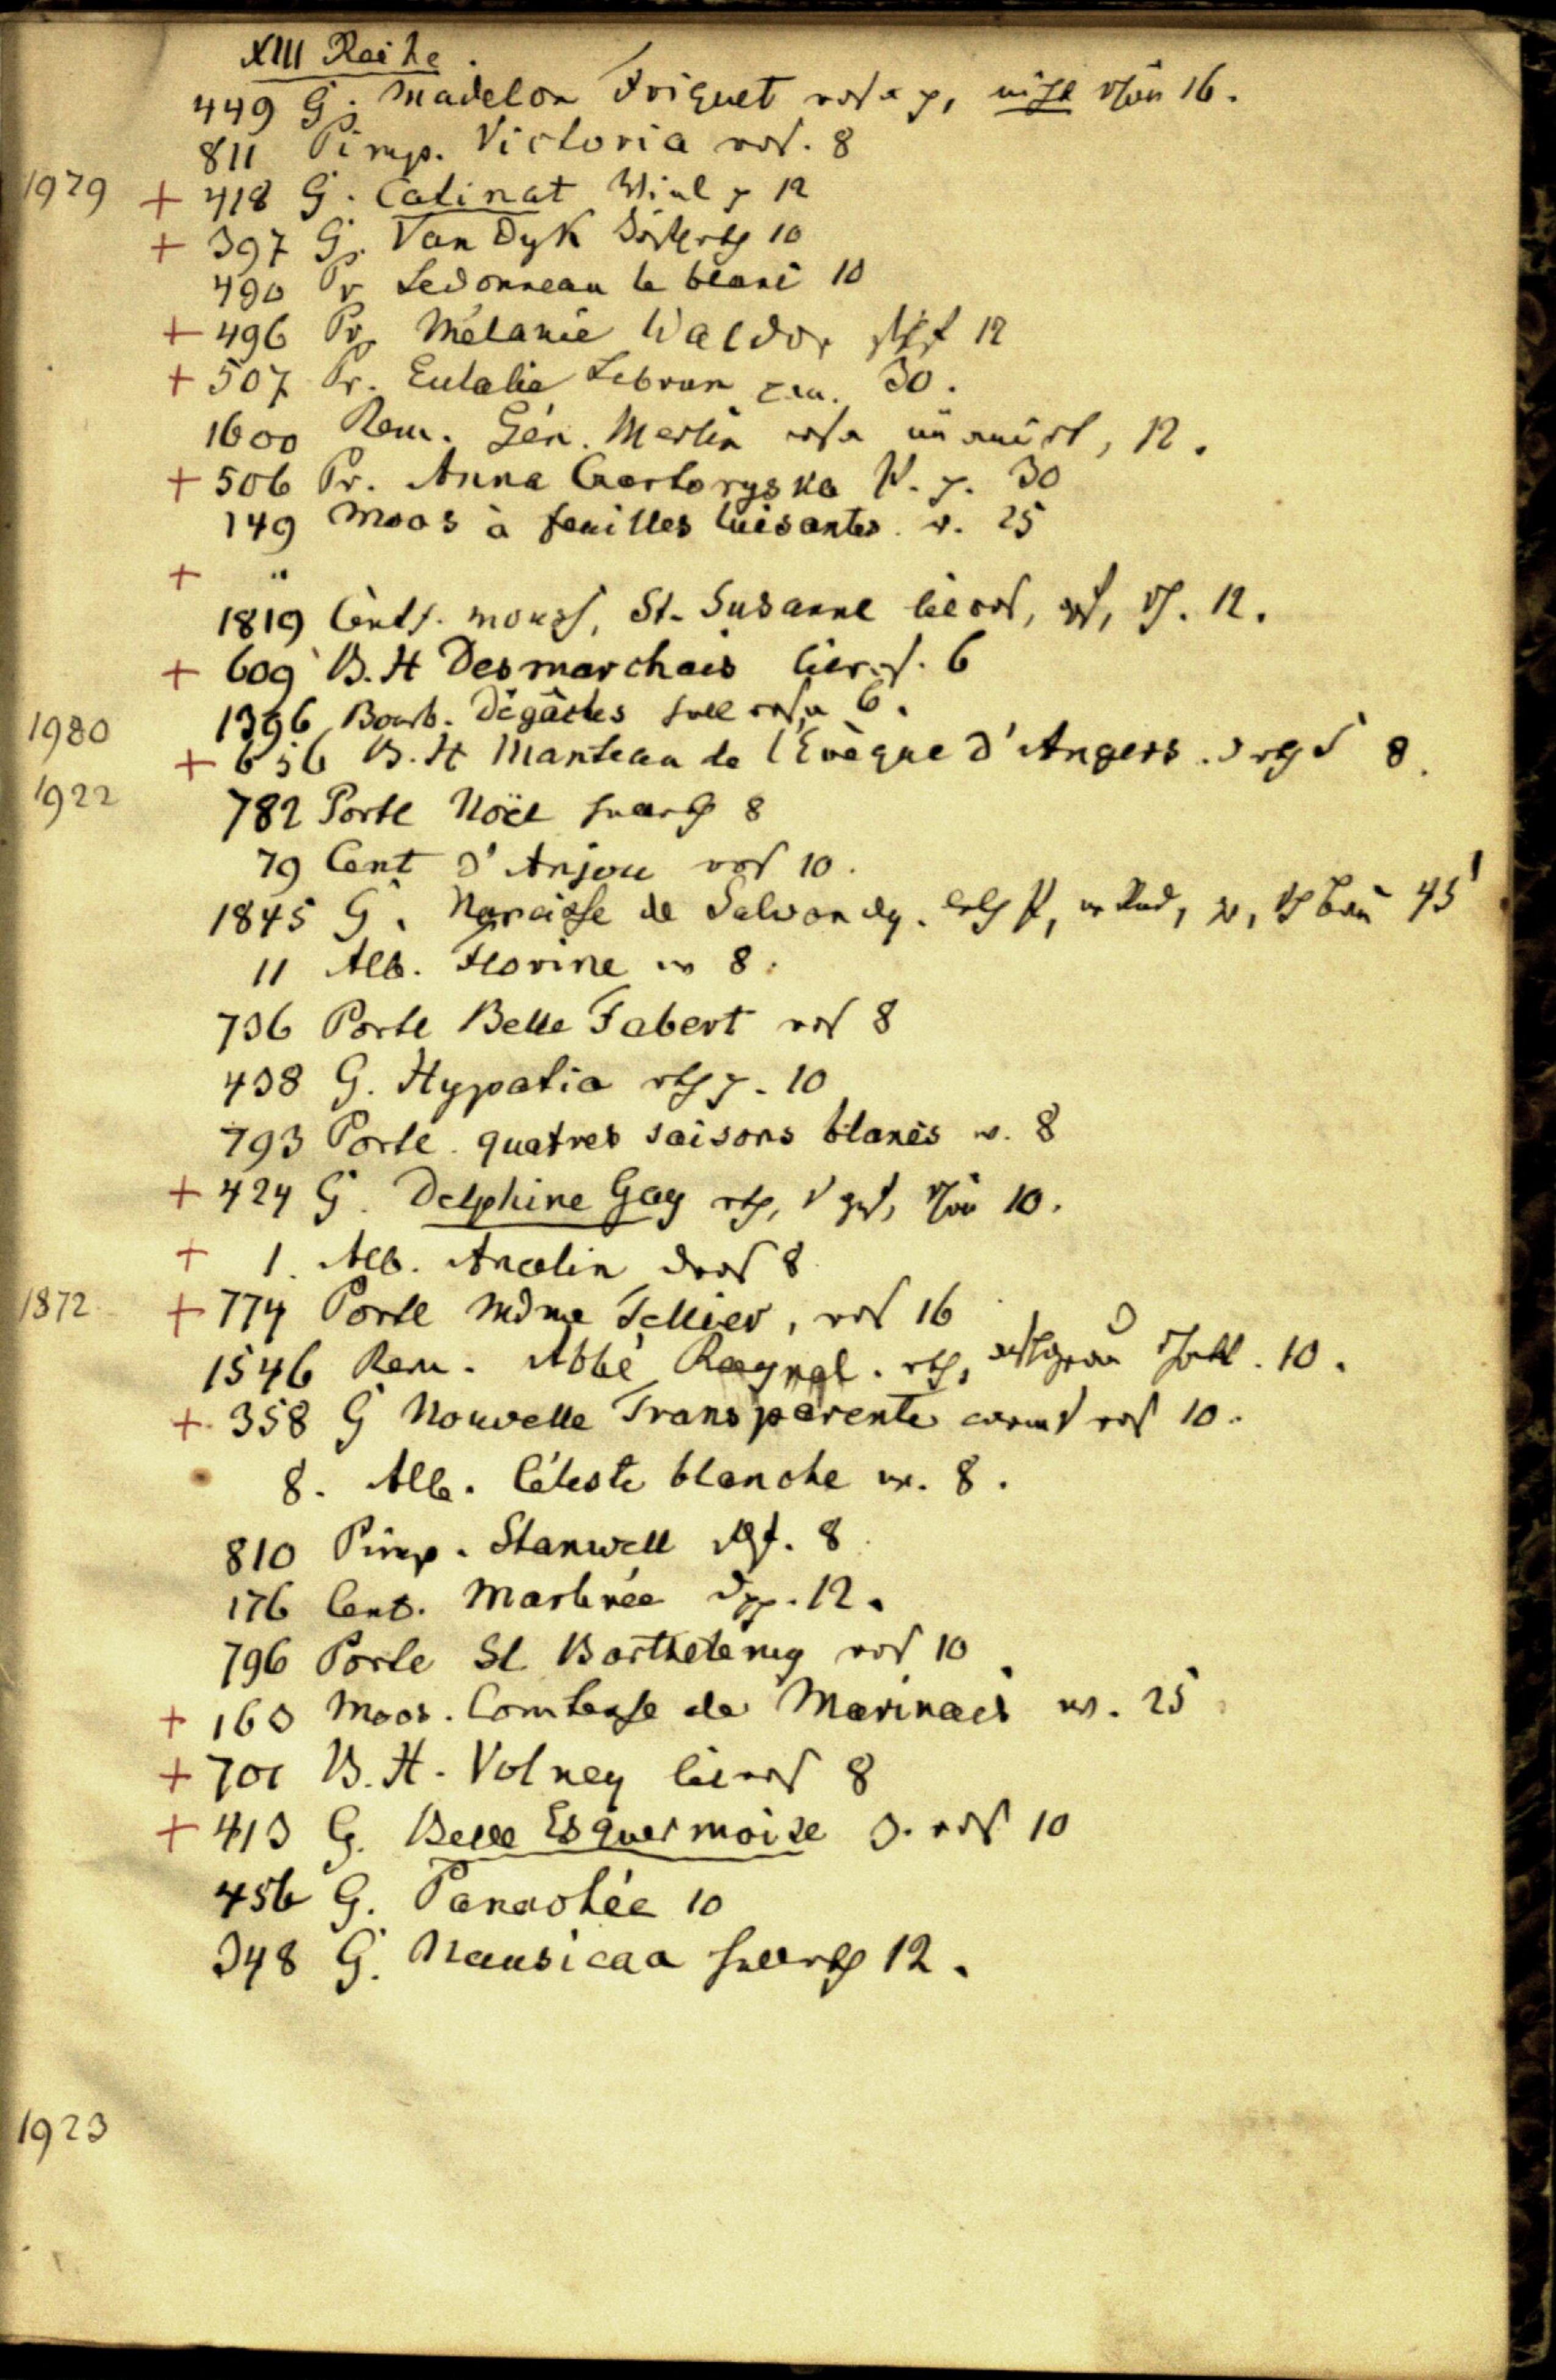 XIII Reihe.
449 G. Madelon Friquet rosa p, nicht schön 16.
811 Pimp. Victoria ros. 8
1979 + 418 G. Catinat Viol p 12
+ 397 G. Van Dyk 10
490 Pr Ledonneau le blanc 10
+ 496 Pr. Mélanie Waldor 12
+ 507 Pr. Eulalie Lebrun 30.
1600 Rem. Gén. Merlin rosa 12.
+ 506 Pr. Anna Czartoryska P. p. 30
149 Moos à feuilles luisantes. r. 25
+ "
1819 Centf. St. Susanne lilaros, 12.
+ 609 B. H Desmarchais 6
1396 Bourb. Dégâches hell rosa 6.
1980
+ 656 B. H Manteau de l'Evèque d'Angers. 8.
1922 782 Portl Noël 8
79 Cent d'Anjou ros 10.
1845 G. Narcisse de Salvandy. 45
11 Alb. Florine w 8.
736 Portl Belle Fabert ros 8
438 G. Hypatia rth p. 10
793 Portl. quatres saisons blancs w. 8
+ 424 G. Delphine Gay rth, schön 10.
+ 1. Alb. Ancelin dros 8
1872 + 774 Portl Mdme Tellier, ros 16
1546 Rem. Abbé Raynal. rth, 10.
+ 358 G Nouvelle Transparente ros 10.
8. Alb. Céleste blanche w. 8.
810 Pimp. Stanwell 8
176 Cent. Marbrée 12.
796 Portl St Barthelemy ros 10
+ 160 Moos. Comtesse de Marinais w. 25
+ 701 B. H. Volney lilaros 8
+ 413 G. Belle Esquermoise d. ros 10
456 G. Panachée 10
348 G. Nausicaa hellrth 12.
1923